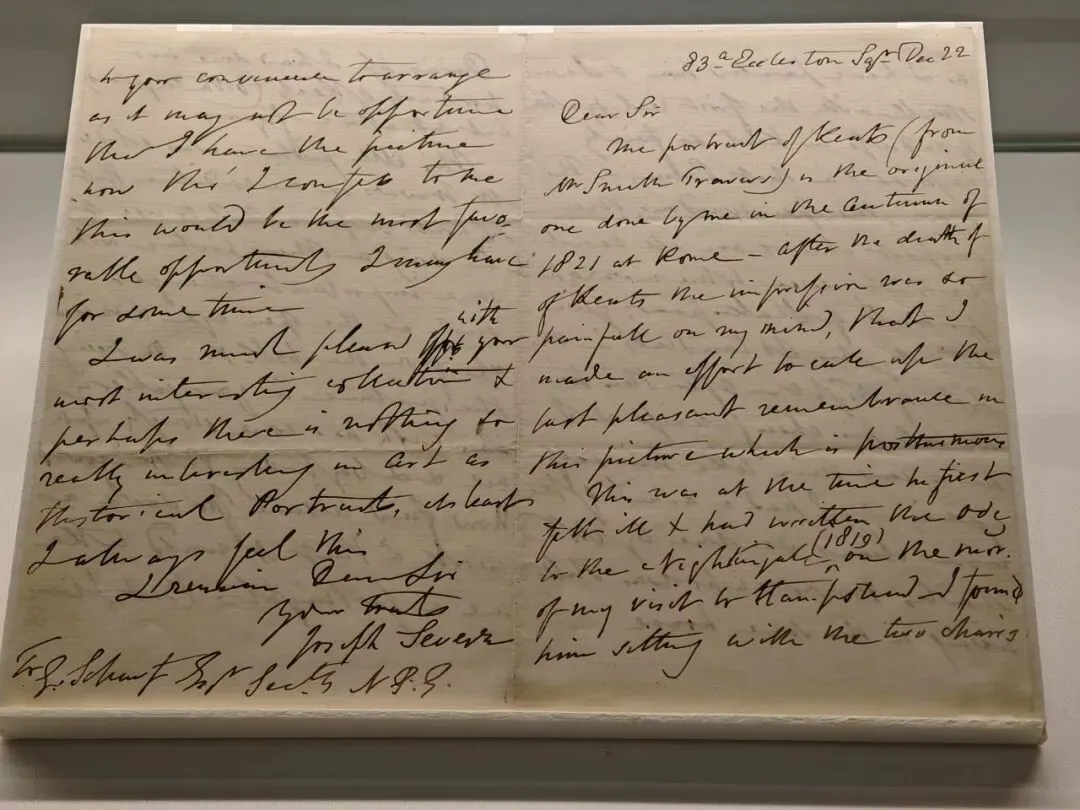 83a Eccleston Sqre Dec 22
Dear Sir
The portrait of Keats (from
Mr Smith Travers) is the original
one done by me in the Autumn of
1821 at Rome – after the death of
of Keats the impression was so
painfull on my mind, that I
made an effort to call up the
last pleasant remembrance in
this picture which is posthumous
This was at the time he first
felt ill & had written the Ode
to the Nightingale (1819) on the mor-
of my visit to Hampstead I found
him sitting with the two chairs
to your convenience to arrange
as it may not be opportune
that I have the picture
now tho' I confess to me
this would be the most favo-
rable opportunity I may have
for some time
I was much pleased with your
most interesting collection &
perhaps there is nothing so
really interesting in Art as
Historical Portraits, at least
I always feel this
I remain Dear Sir
Yours truly
Joseph Severn
To G. Scharf Esqr Secty N.P.G.